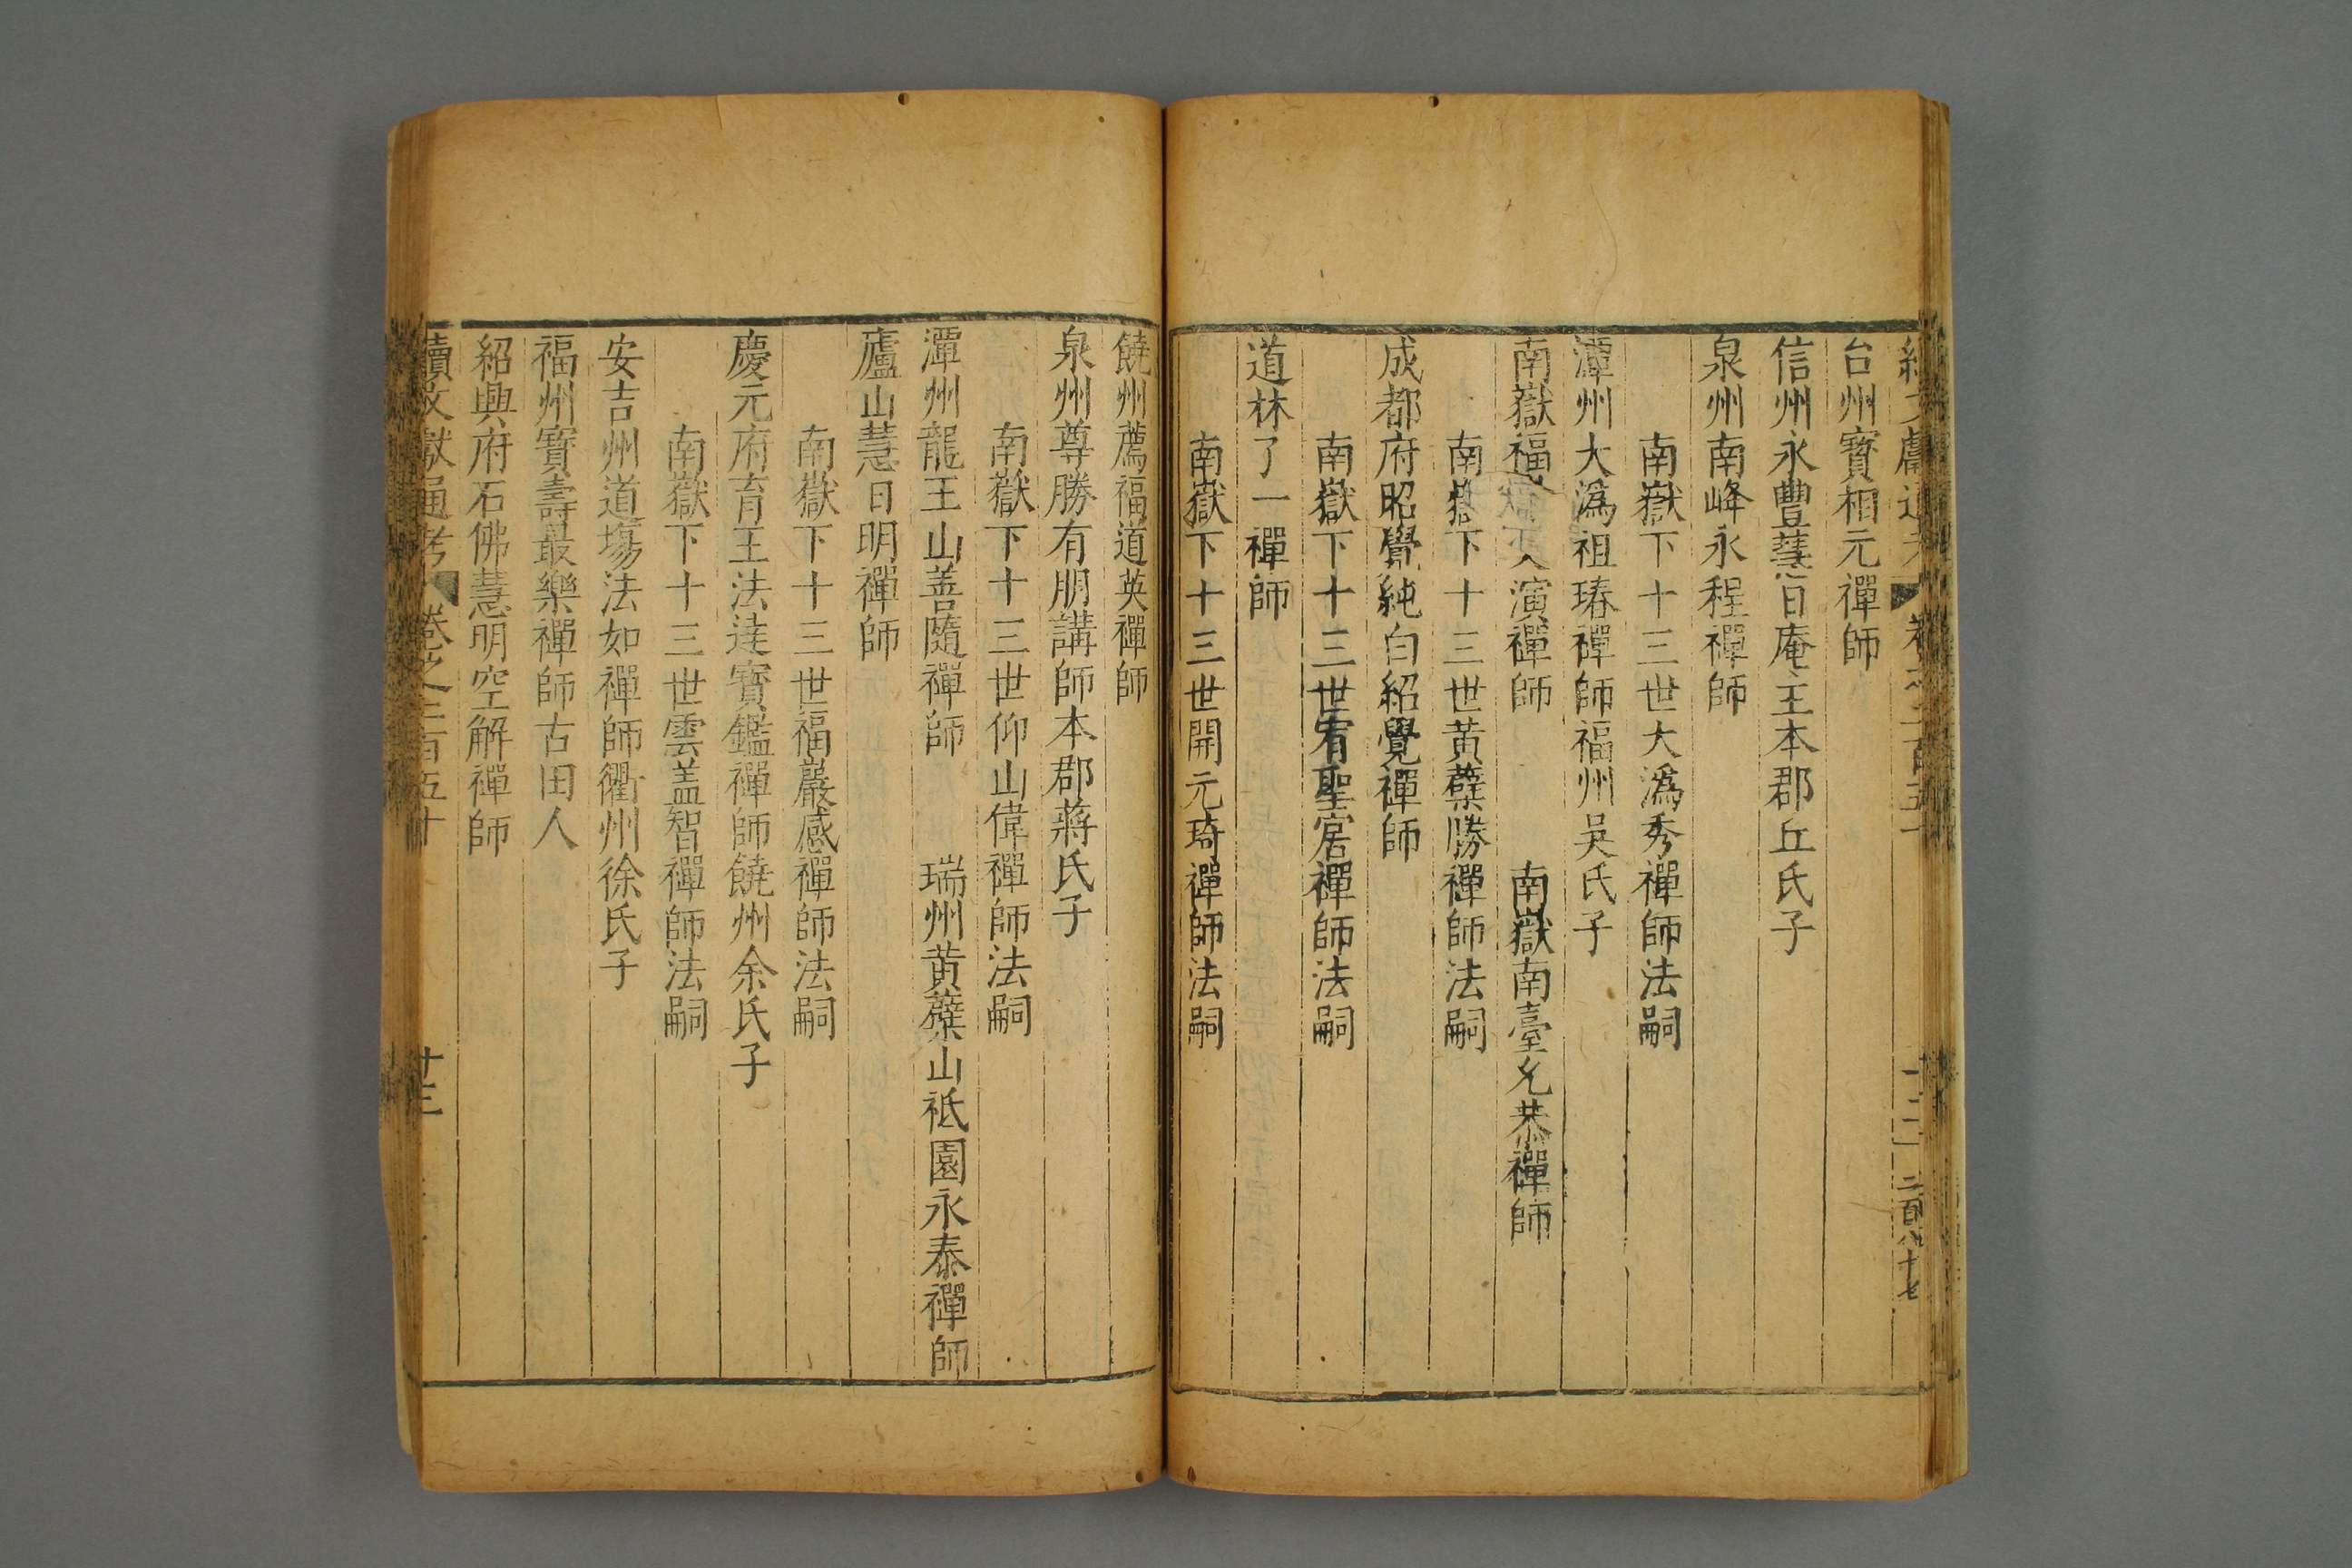 台州寳相元禪師
信州永豐慧日庵主本郡丘氏子
泉州南峰永程禪師
南嶽下十三世大潙秀禪師法嗣
潭州大潙祖瑃禪師福州吴氏子
南嶽福 演禪師 南嶽南臺允恭禪師
南嶽下十三世黄蘗勝禪師法嗣
成都府昭覺純白紹覺禪師
南嶽下十三世宥聖宫禪師法嗣
道林了一禪師
南嶽下十三世開元琦禪師法嗣
饒州薦福道英禪師
泉州尊勝有朋講師本郡蔣氏子
南嶽下十三世仰山偉禪師法嗣
潭州龍王山善隨禪師 瑞州黄蘗山祇園永泰禪師
廬山慧日明禪師
南嶽下十三世福巖感禪師法嗣
慶元府育王法達寳鑑禪師饒州余氏子
南嶽下十三世雲盖智禪師法嗣
安吉州道塲法如禪師衢州徐氏子
福州寳壽最樂禪師古田人
紹興府石佛慧明空解禪師
續文獻通考 卷之二百五十 廿三